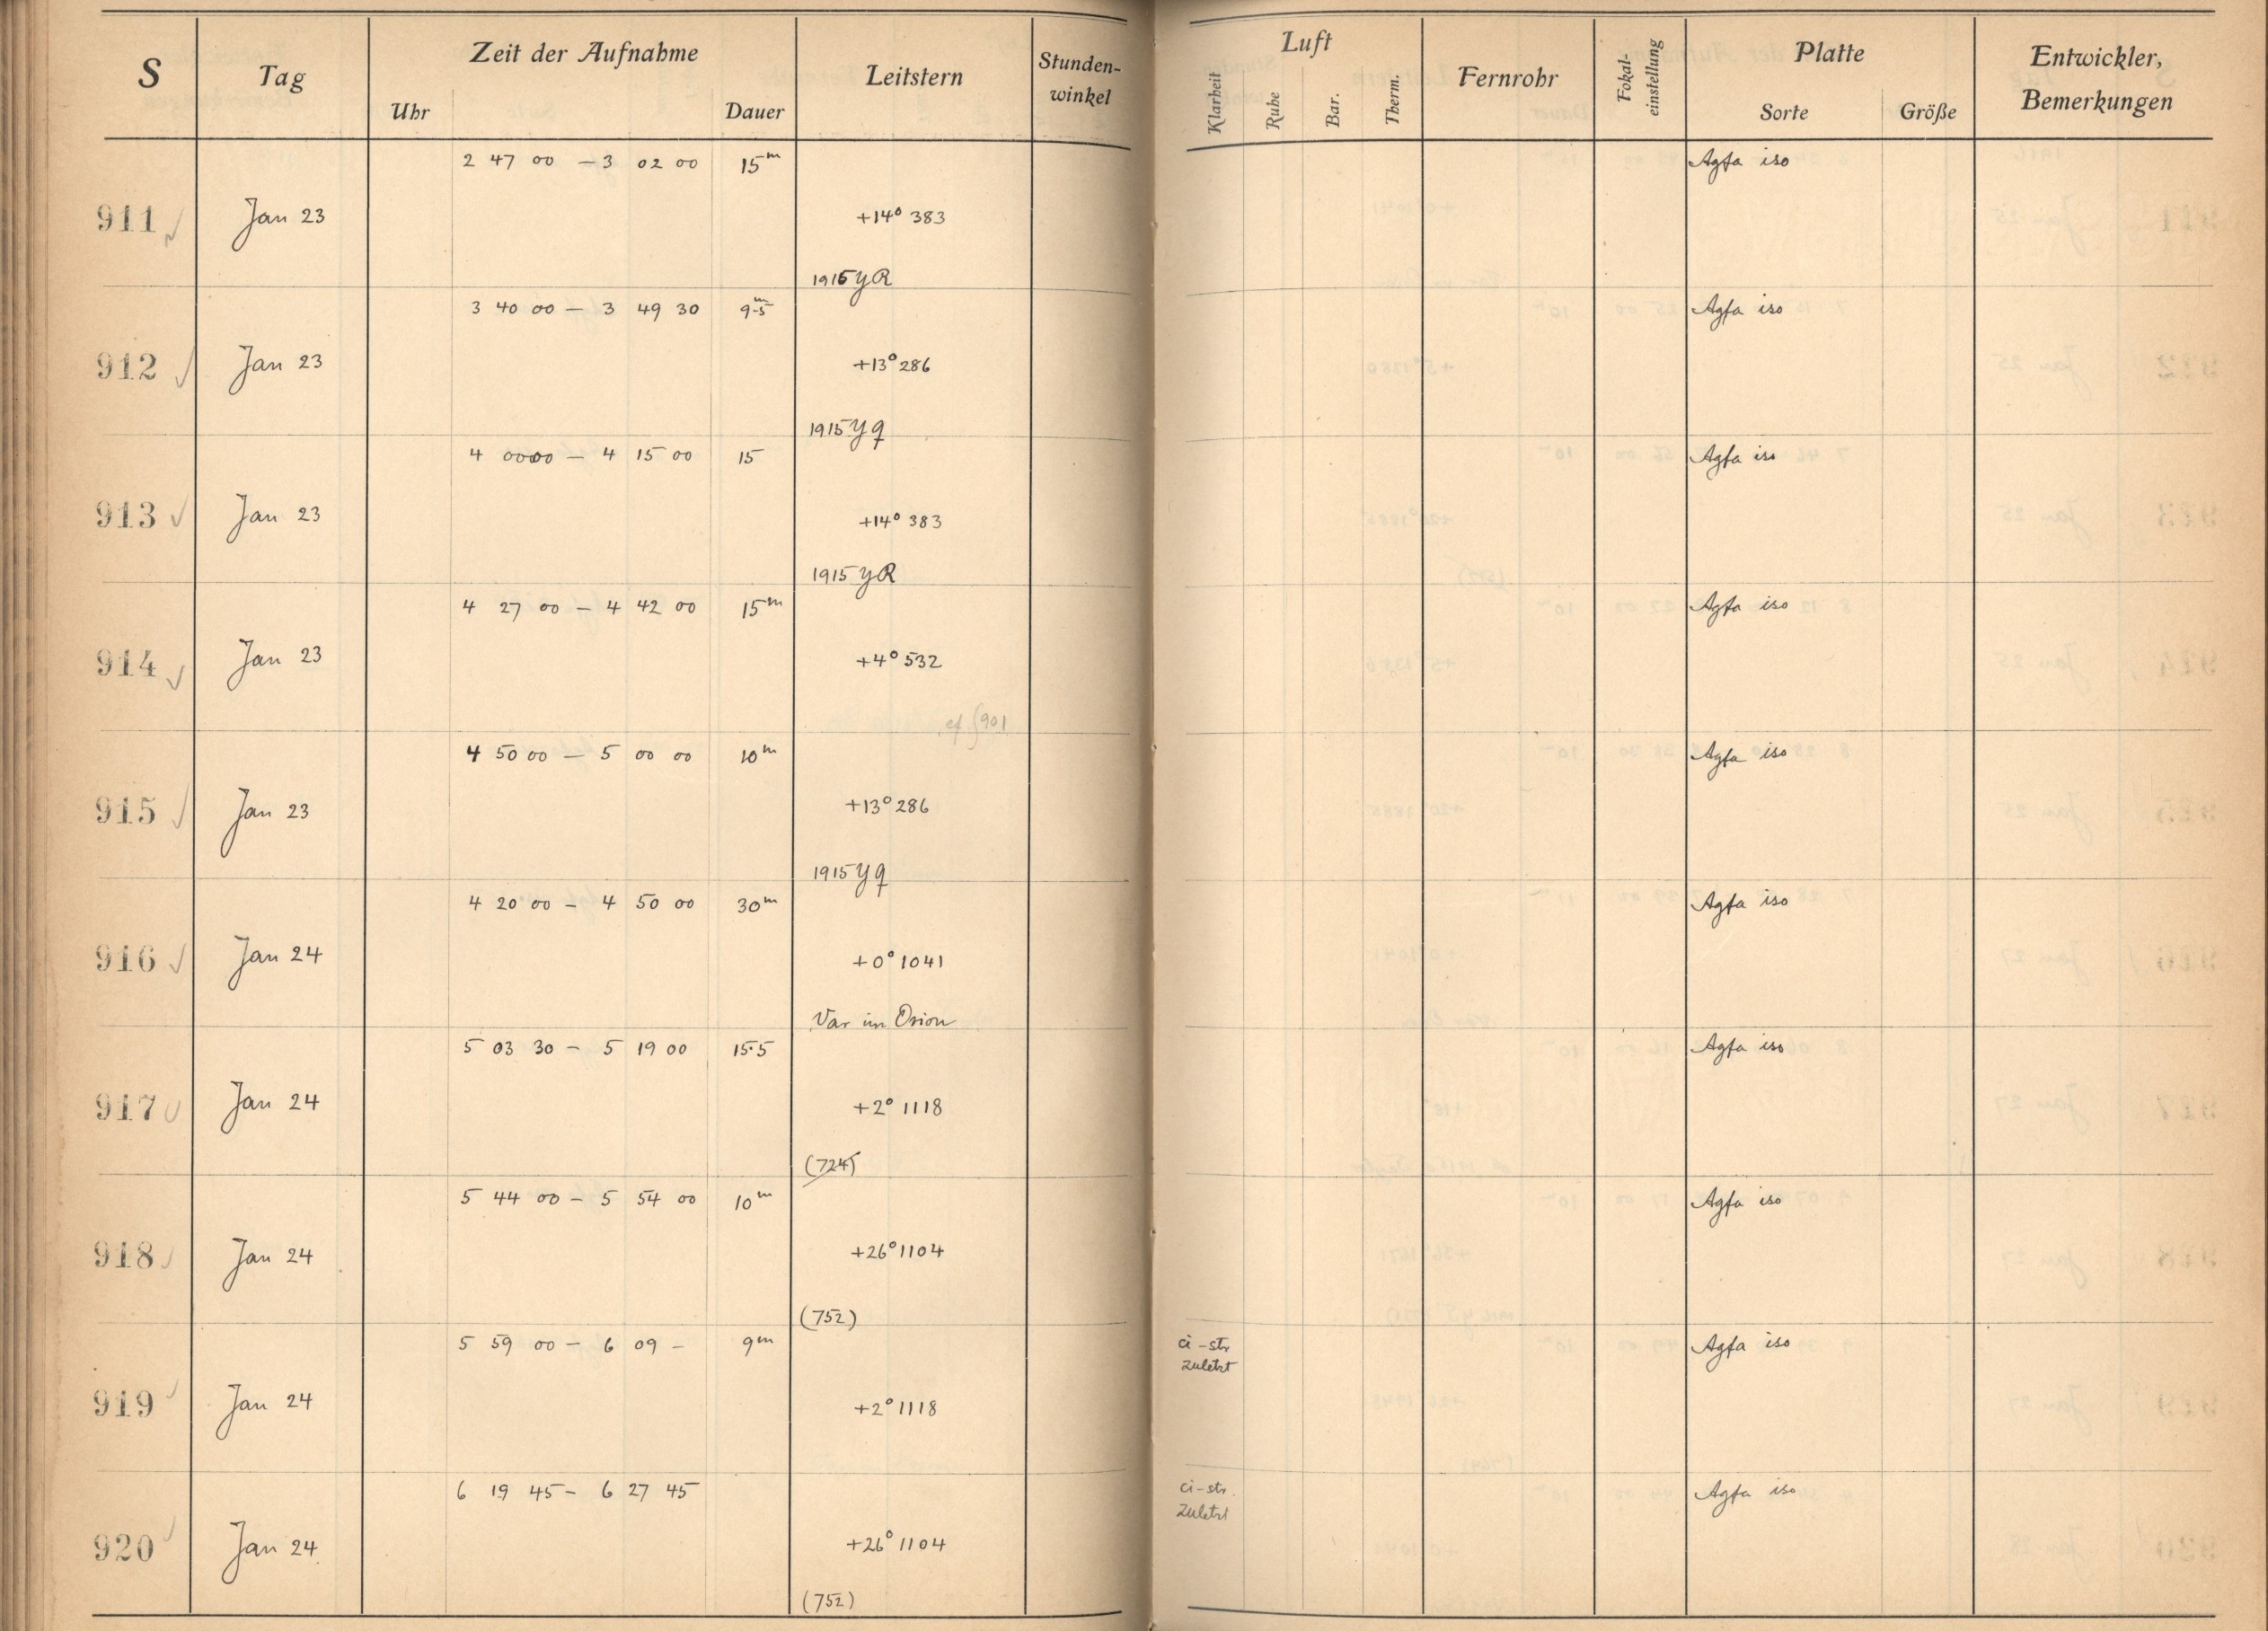 S Tag Zeit der Aufnahme Leitstern Stunden-winkel Luft Fernrohr Fokal-einstellung Platte Entwickler, Bemerkungen
Uhr Dauer Klarheit Ruhe Bar. Therm. Sorte Größe
2 47 00 — 3 02 00 15m Agfa iso
911 Jan 23 +14° 383
1915 YR
3 40 00 — 3 49 30 9.5m Agfa iso
912 Jan 23 +13° 286
1915 Yq
4 00 00 — 4 15 00 15 Agfa iso
913 Jan 23 +14° 383
1915 YR
4 27 00 — 4 42 00 15m Agfa iso
914 Jan 23 +4° 532
cf. S 901
4 50 00 — 5 00 00 10m Agfa iso
915 Jan 23 +13° 286
1915 Yq
4 20 00 — 4 50 00 30m Agfa iso
916 Jan 24 +0° 1041
Var im Orion
5 03 30 — 5 19 00 15.5 Agfa iso
917 Jan 24 +2° 1118
(724)
5 44 00 — 5 54 00 10m Agfa iso
918 Jan 24 +26° 1104
(752)
5 59 00 — 6 09 — 9m ci-str. Agfa iso
zuletzt
919 Jan 24 +2° 1118
6 19 45 — 6 27 45 ci-str. Agfa iso
zuletzt
920 Jan 24 +26° 1104
(752)